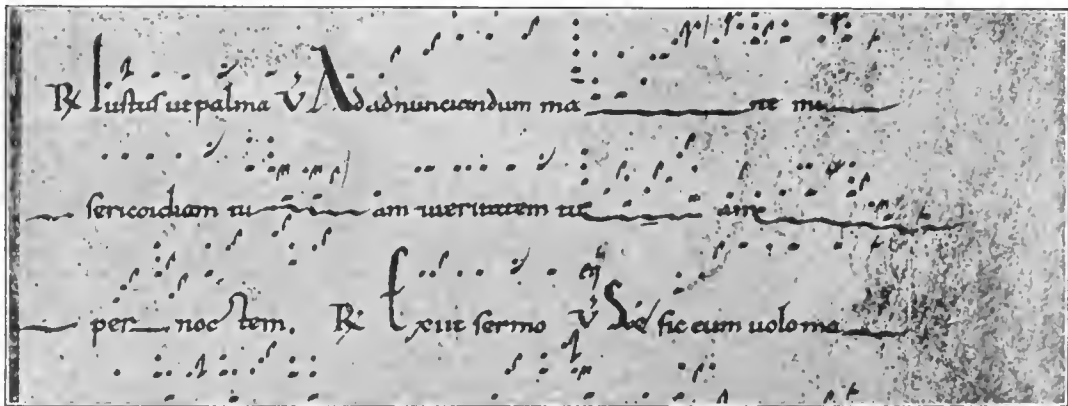 R Iustus ut palma V Ad adnunciandum ma ne mi
sericordiam tu am et ueritatem tu am
per noctem. R Exiit sermo V Sed sic eum uolo ma